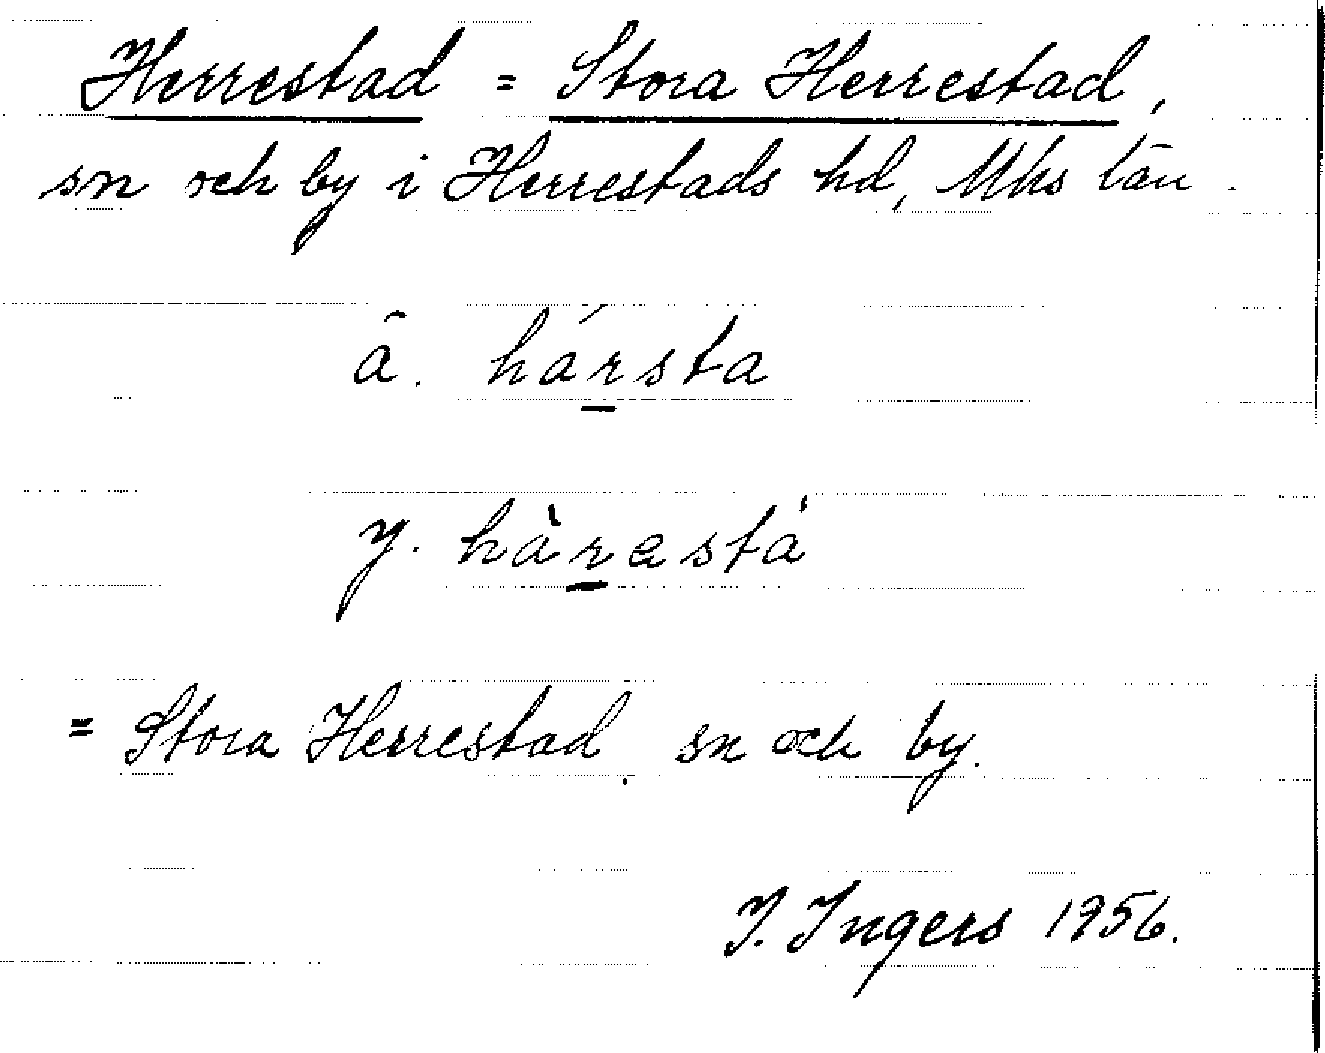 Herrestad = Stora Herrestad,
sn och by i Herrestads hd, Mhs län.
ä. hársta
y. hàrastá
= Stora Herrestad, sn och by.
I. Ingers 1956.